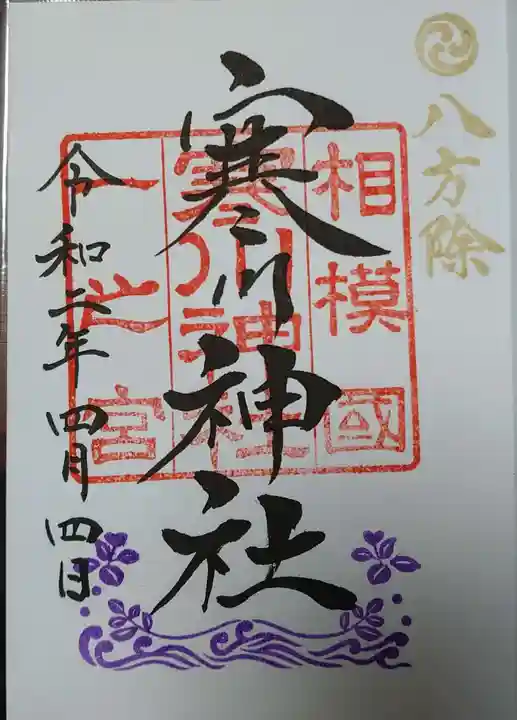 八方除
寒川神社
相模國
寒川神社
一之宮
令和二年四月四日